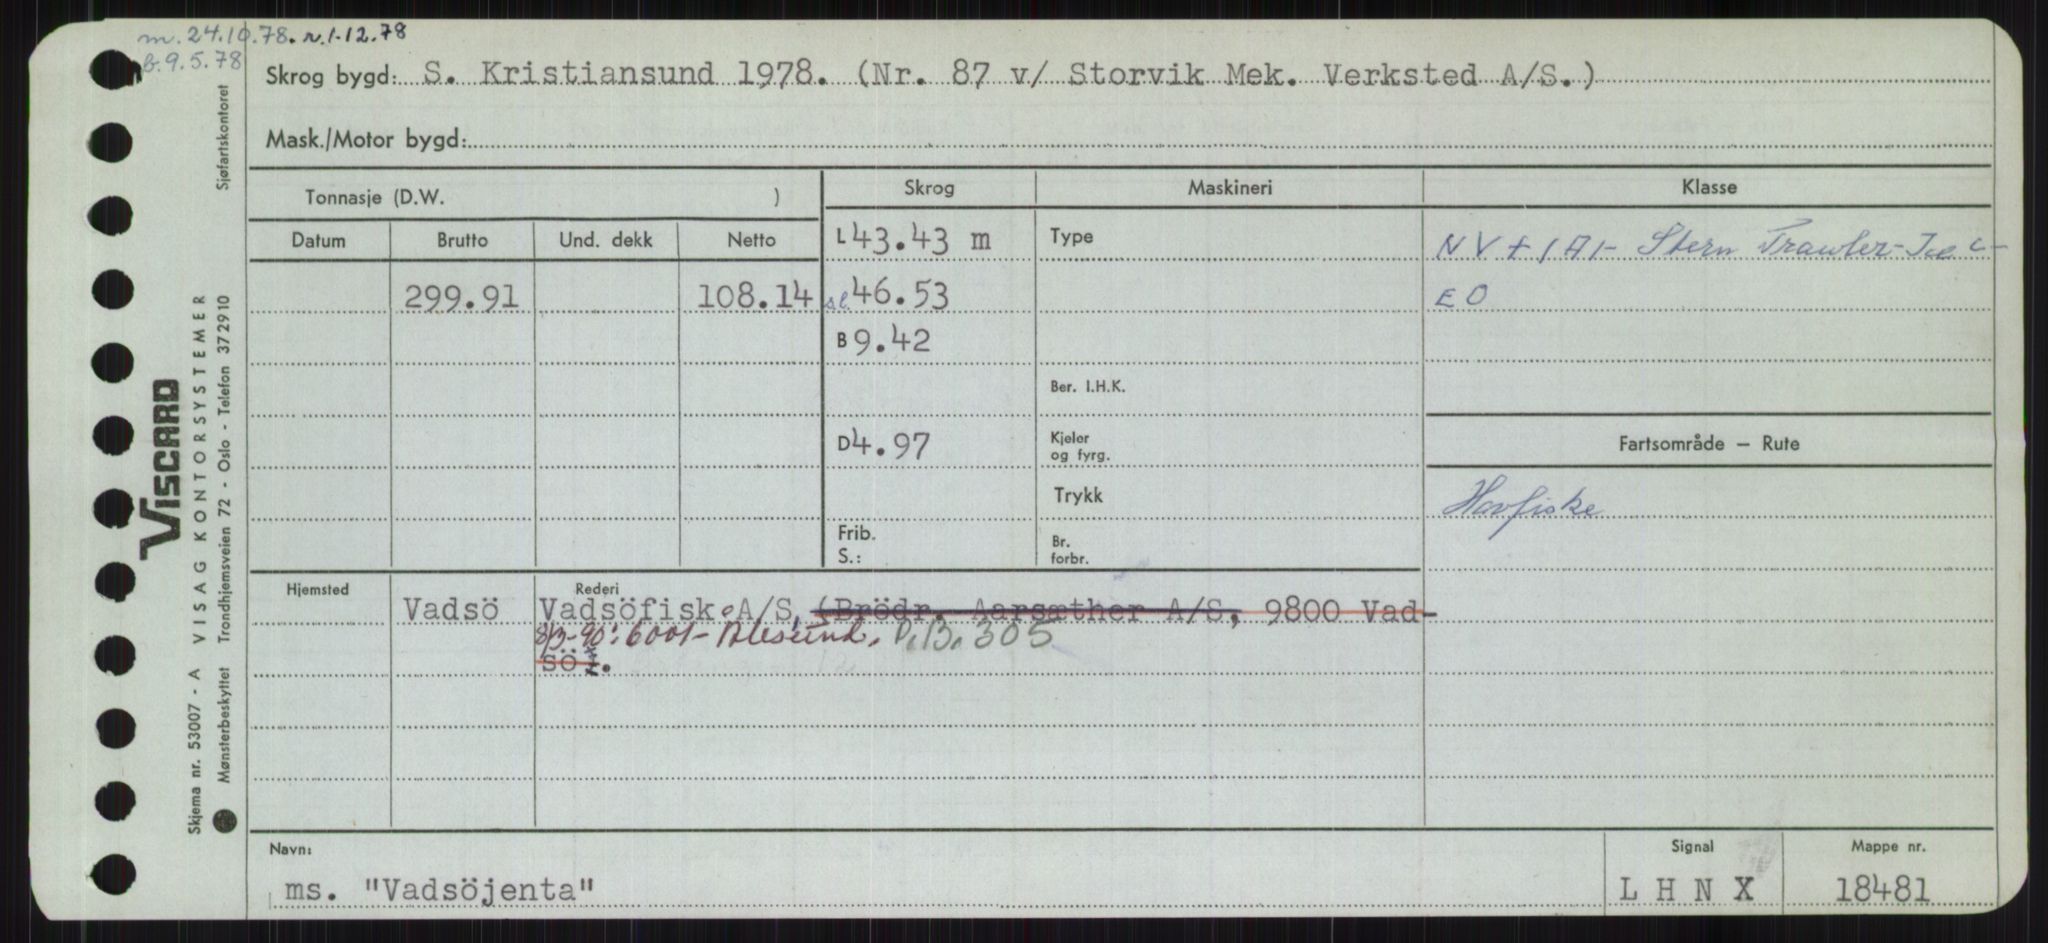 m. 24.10.78. r. 1-12.78
b. 9.5.78
Skrog bygd: S. Kristiansund 1978. (Nr. 87 v/ Storvik Mek. Verksted A/S.)
Mask./Motor bygd:
Tonnasje (D.W. )
Datum Brutto Und. dekk Netto
299.91 108.14
Skrog
L 43.43 m
sl. 46.53
B 9.42
D 4.97
Frib.
S.:
Maskineri
Type
Ber. I.H.K.
Kjeler
og fyrg.
Trykk
Br.
forbr.
Klasse
NV + 1A1- Stern Trawler- Ice C-
EO
Fartsområde — Rute
Havfiske
Hjemsted Rederi
Vadsö Vadsöfisk A/S, (Brödr. Aarsæther A/S, 9800 Vad-
8/3-90: 6001- Ålesund. P.B. 305
sö).
Navn:
ms. "Vadsöjenta"
Signal
LHNX
Mappe nr.
18481
Sjøfartskontoret
VISCARD
VISAG KONTORSYSTEMER
Trondhjemsveien 72 - Oslo - Telefon 37 29 10
Skjema nr. 53007 - A
Mønsterbeskyttet